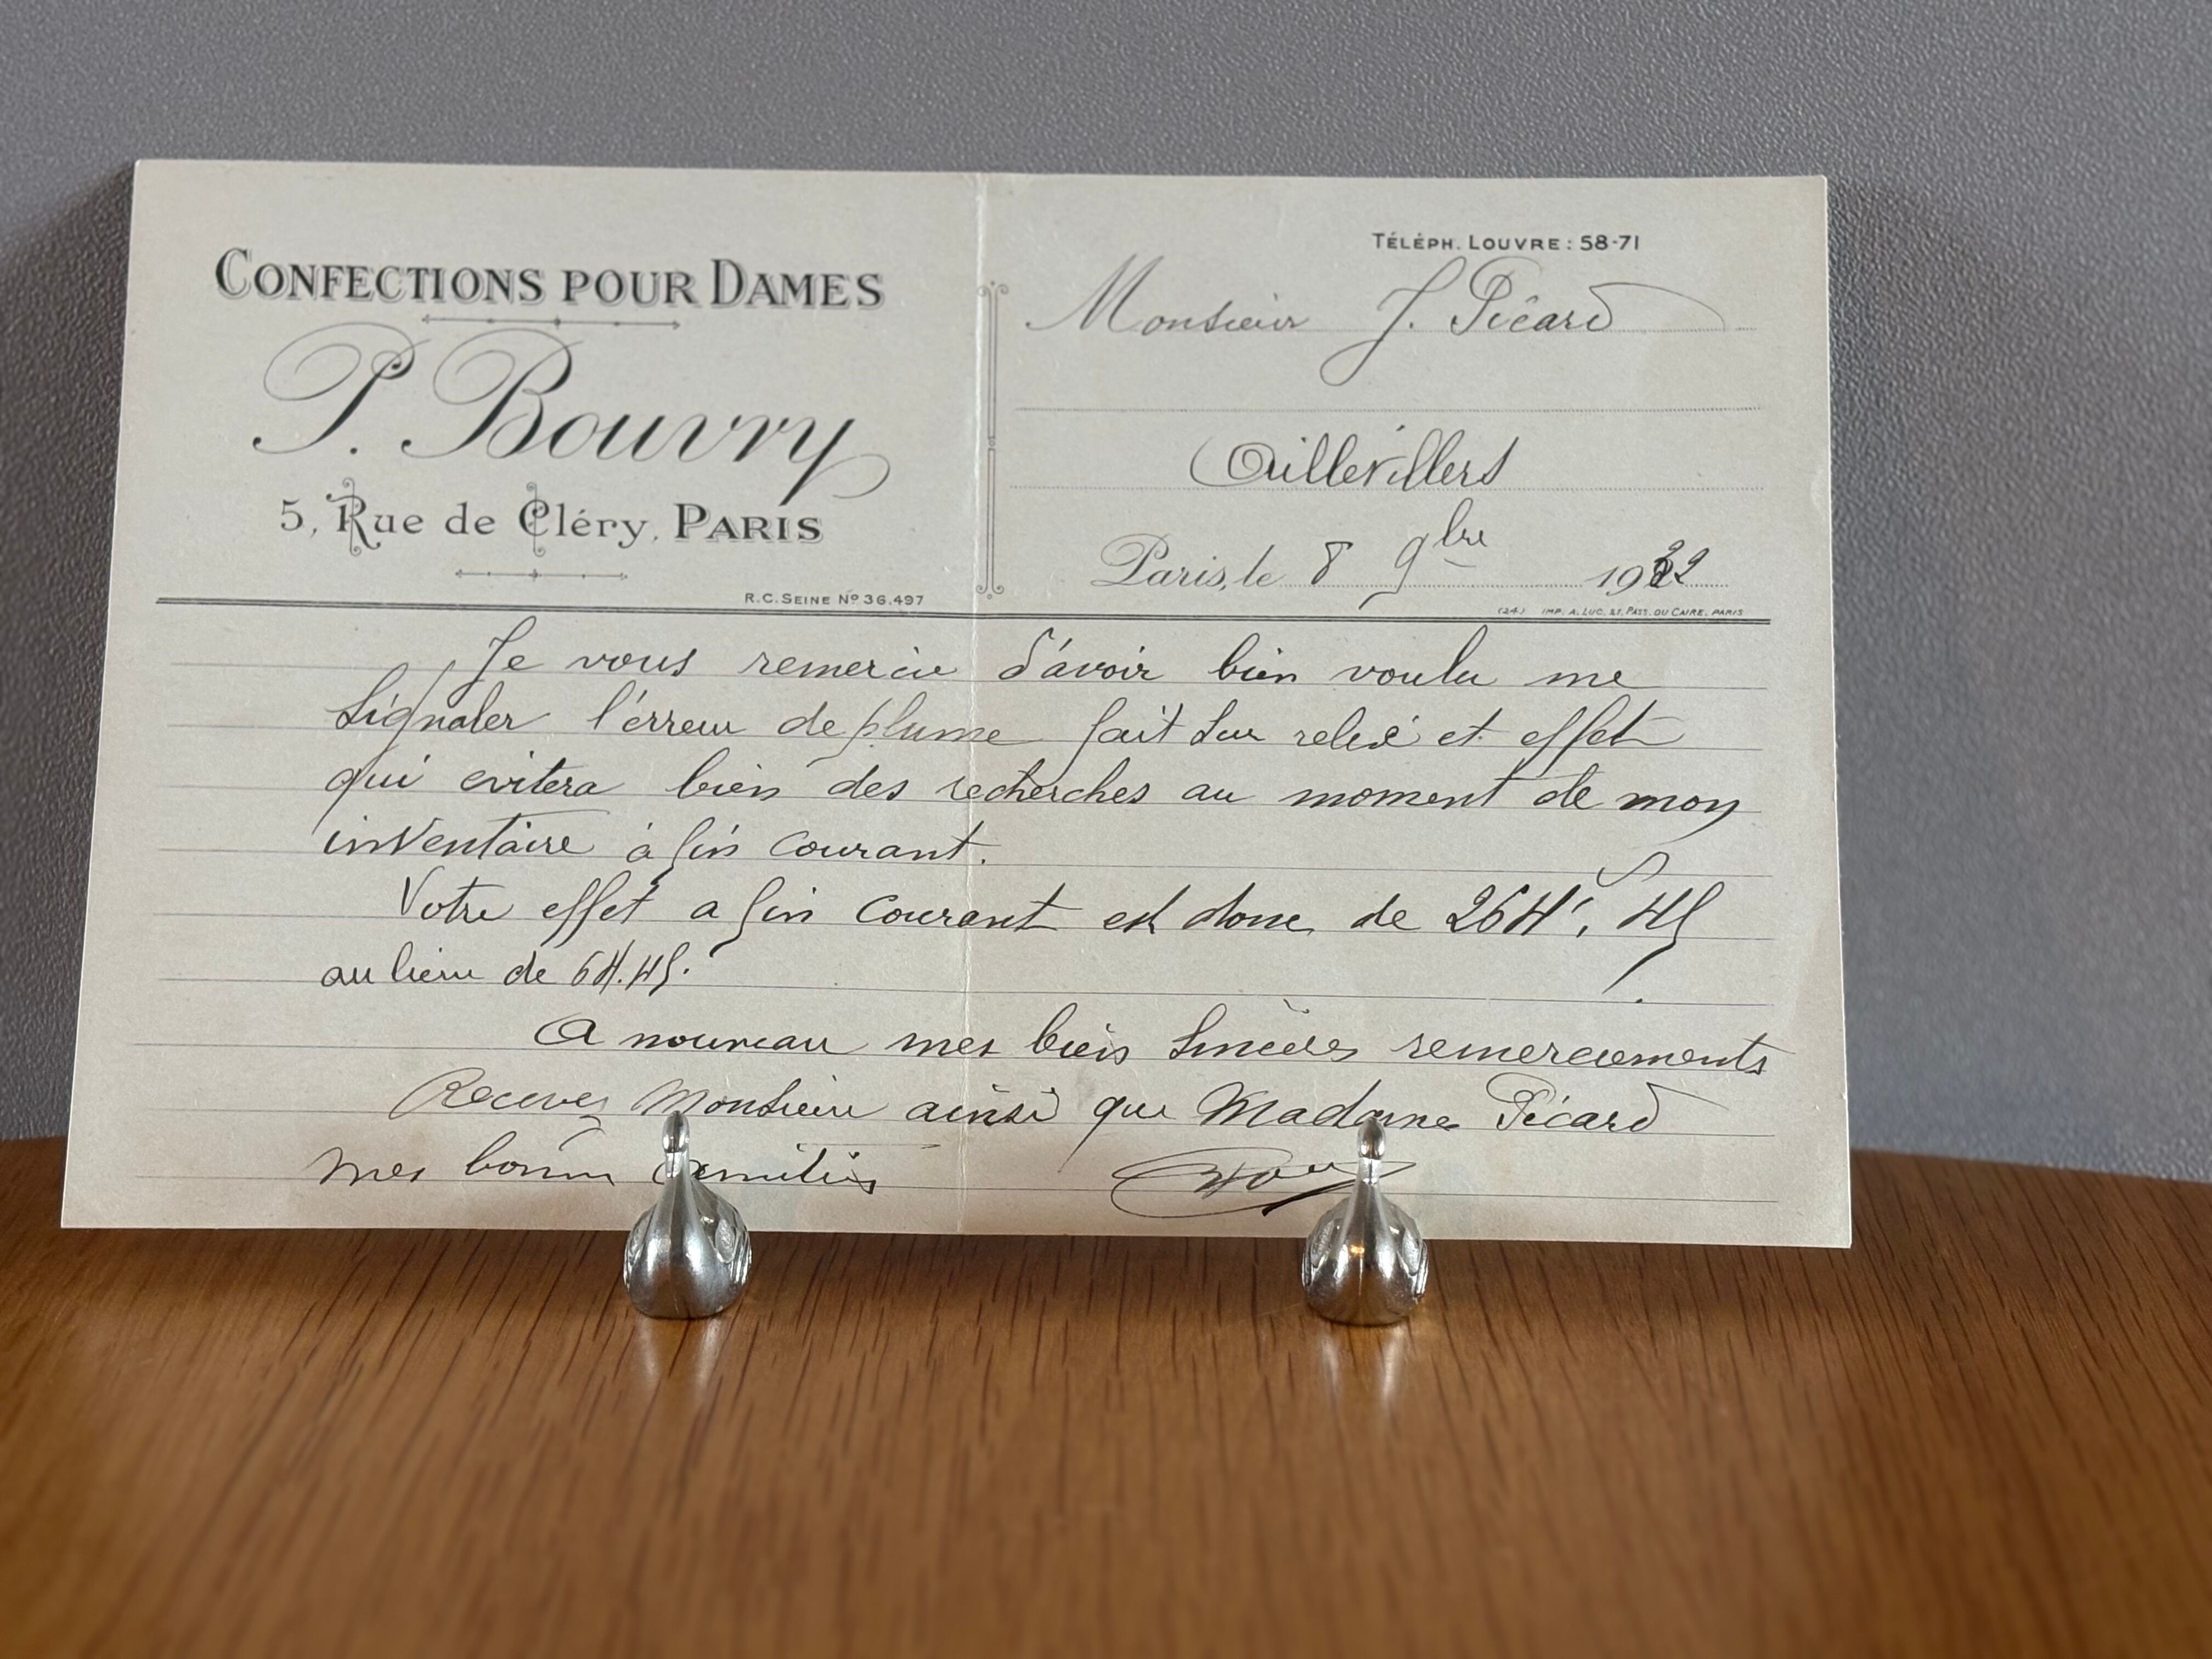 CONFECTIONS POUR DAMES
P. Bouvry
5, Rue de Cléry, PARIS
R.C. SEINE Nº 36.497
TÉLÉPH. LOUVRE : 58-71
Monsieur J. Picard
Aillevillers
Paris, le 8 9bre 19
(24) IMP. A. LUC. 21, PASS. DU CAIRE. PARIS
Je vous remercie d'avoir bien voulu me
signaler l'érreur de plume fait sur relevé et effet
qui evitera bien des recherches au moment de mon
inventaire à fin courant.
Votre effet a fin courant est donc de 264f, 45
au lieu de 64.45.
A nouveau mes biens sincères remerciements
Recevez Monsieur ainsi que Madame Picard
mes bonnes amitiés